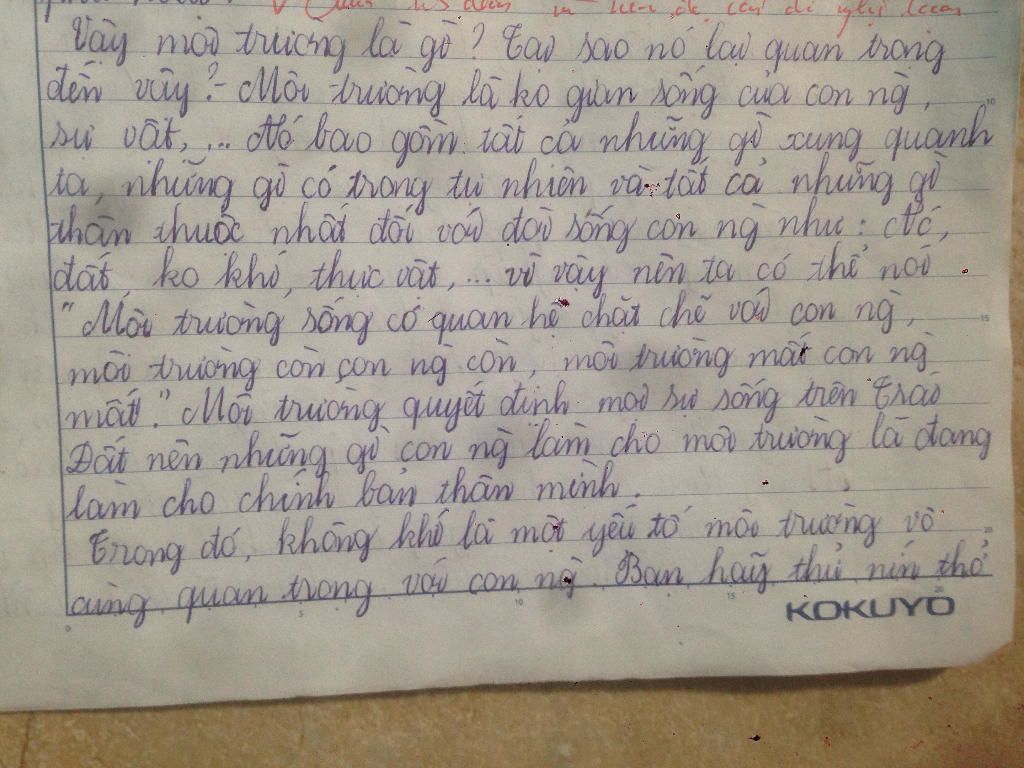 Vậy môi trường là gì? Tại sao nó lại quan trọng
đến vậy? - Môi trường là ko gian sống của con ng̀,
sự vật, ... Nó bao gồm tất cả những gì xung quanh
ta, những gì có trong tự nhiên và tất cả những gì
thân thuộc nhất đối với đời sống con ng̀ như: Nć,
đất, ko khí, thực vật, ... vì vậy nên ta có thể nói
"Môi trường sống có quan hệ chặt chẽ với con ng̀,
môi trường còn con ng̀ còn, môi trường mất con ng̀
mất!" Môi trường quyết định mọi sự sống trên Trái
Đất nên những gì con ng̀ làm cho môi trường là đang
làm cho chính bản thân mình.
Trong đó, không khí là một yếu tố môi trường vô
cùng quan trọng với con ng̀. Bạn hãy thử nín thở
KOKUYO